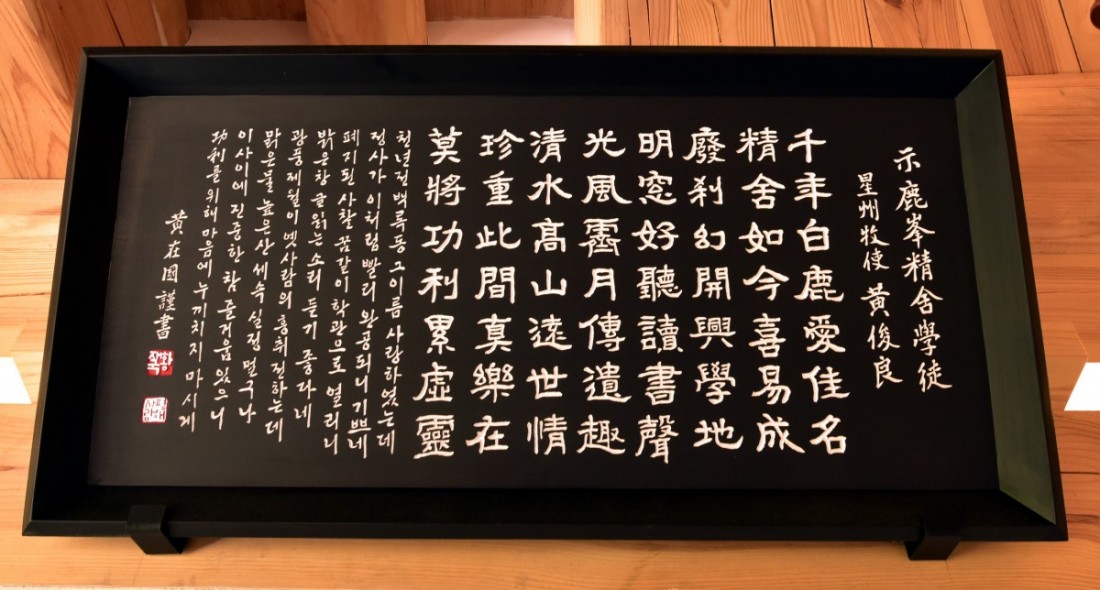 示鹿峯精舍學徒
星州牧使 黃俊良
千年白鹿愛佳名
精舍如今喜易成
廢刹幻開興學地
明窓好聽讀書聲
光風霽月傳遺趣
清水髙山遠世情
珍重此間真樂在
莫將功利累虛靈
천년전 백록동 그 이름 사랑하였는데
정사가 이처럼 빨리 완공되니 기쁘네
폐지된 사찰 꿈같이 학관으로 열리니
밝은창 글 읽는 소리 듣기 좋다네
광풍제월이 옛사람의 흥취 전하는데
맑은물 높은산 세속 실정 멀구나
이 사이에 진중한 참 즐거움 있으니
功利를 위해 마음에 누끼치지 마시게
黃在國 謹書
황재국